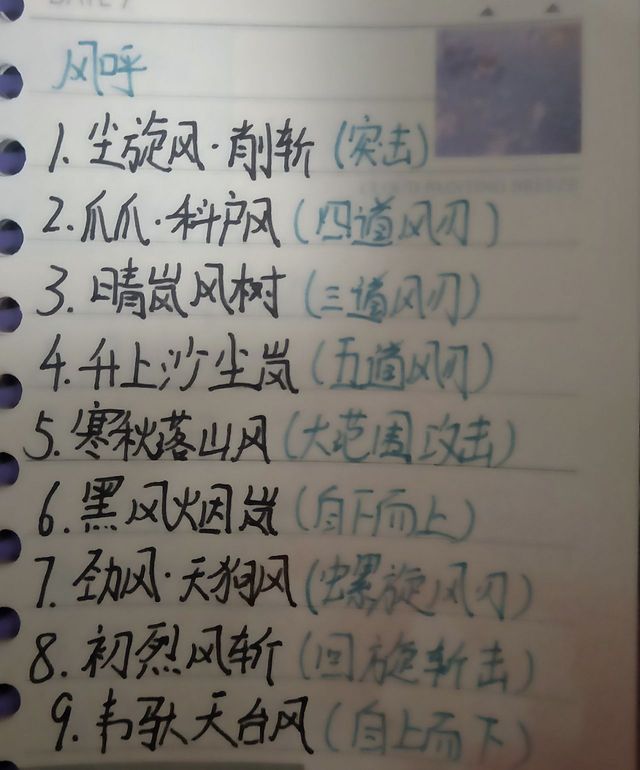 风呼
1. 尘旋风·削斩(突击)
2. 爪爪·科户风(四道风刃)
3. 晴岚风树(三道风刃)
4. 升上沙尘岚(五道风刃)
5. 寒秋落山风(大范围攻击)
6. 黑风烟岚(自下而上)
7. 劲风·天狗风(螺旋风刃)
8. 初烈风斩(回旋斩击)
9. 韦驮天台风(自上而下)